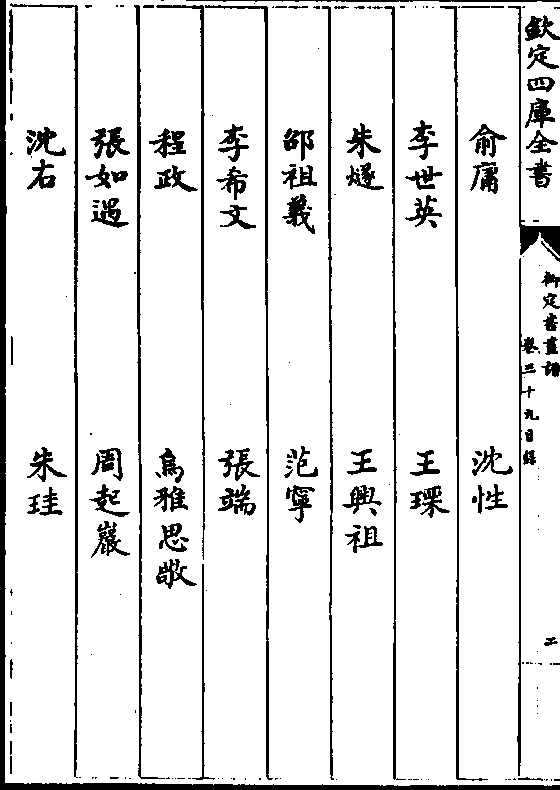 欽定四庫全書
御定書畫譜
卷三十九目録
二
俞庸 沈性
李世英 王琛
朱燧 王興祖
邵祖義 范寧
李希文 張端
程政 烏雅思敬
張如遇 周起巖
沈右 朱珪